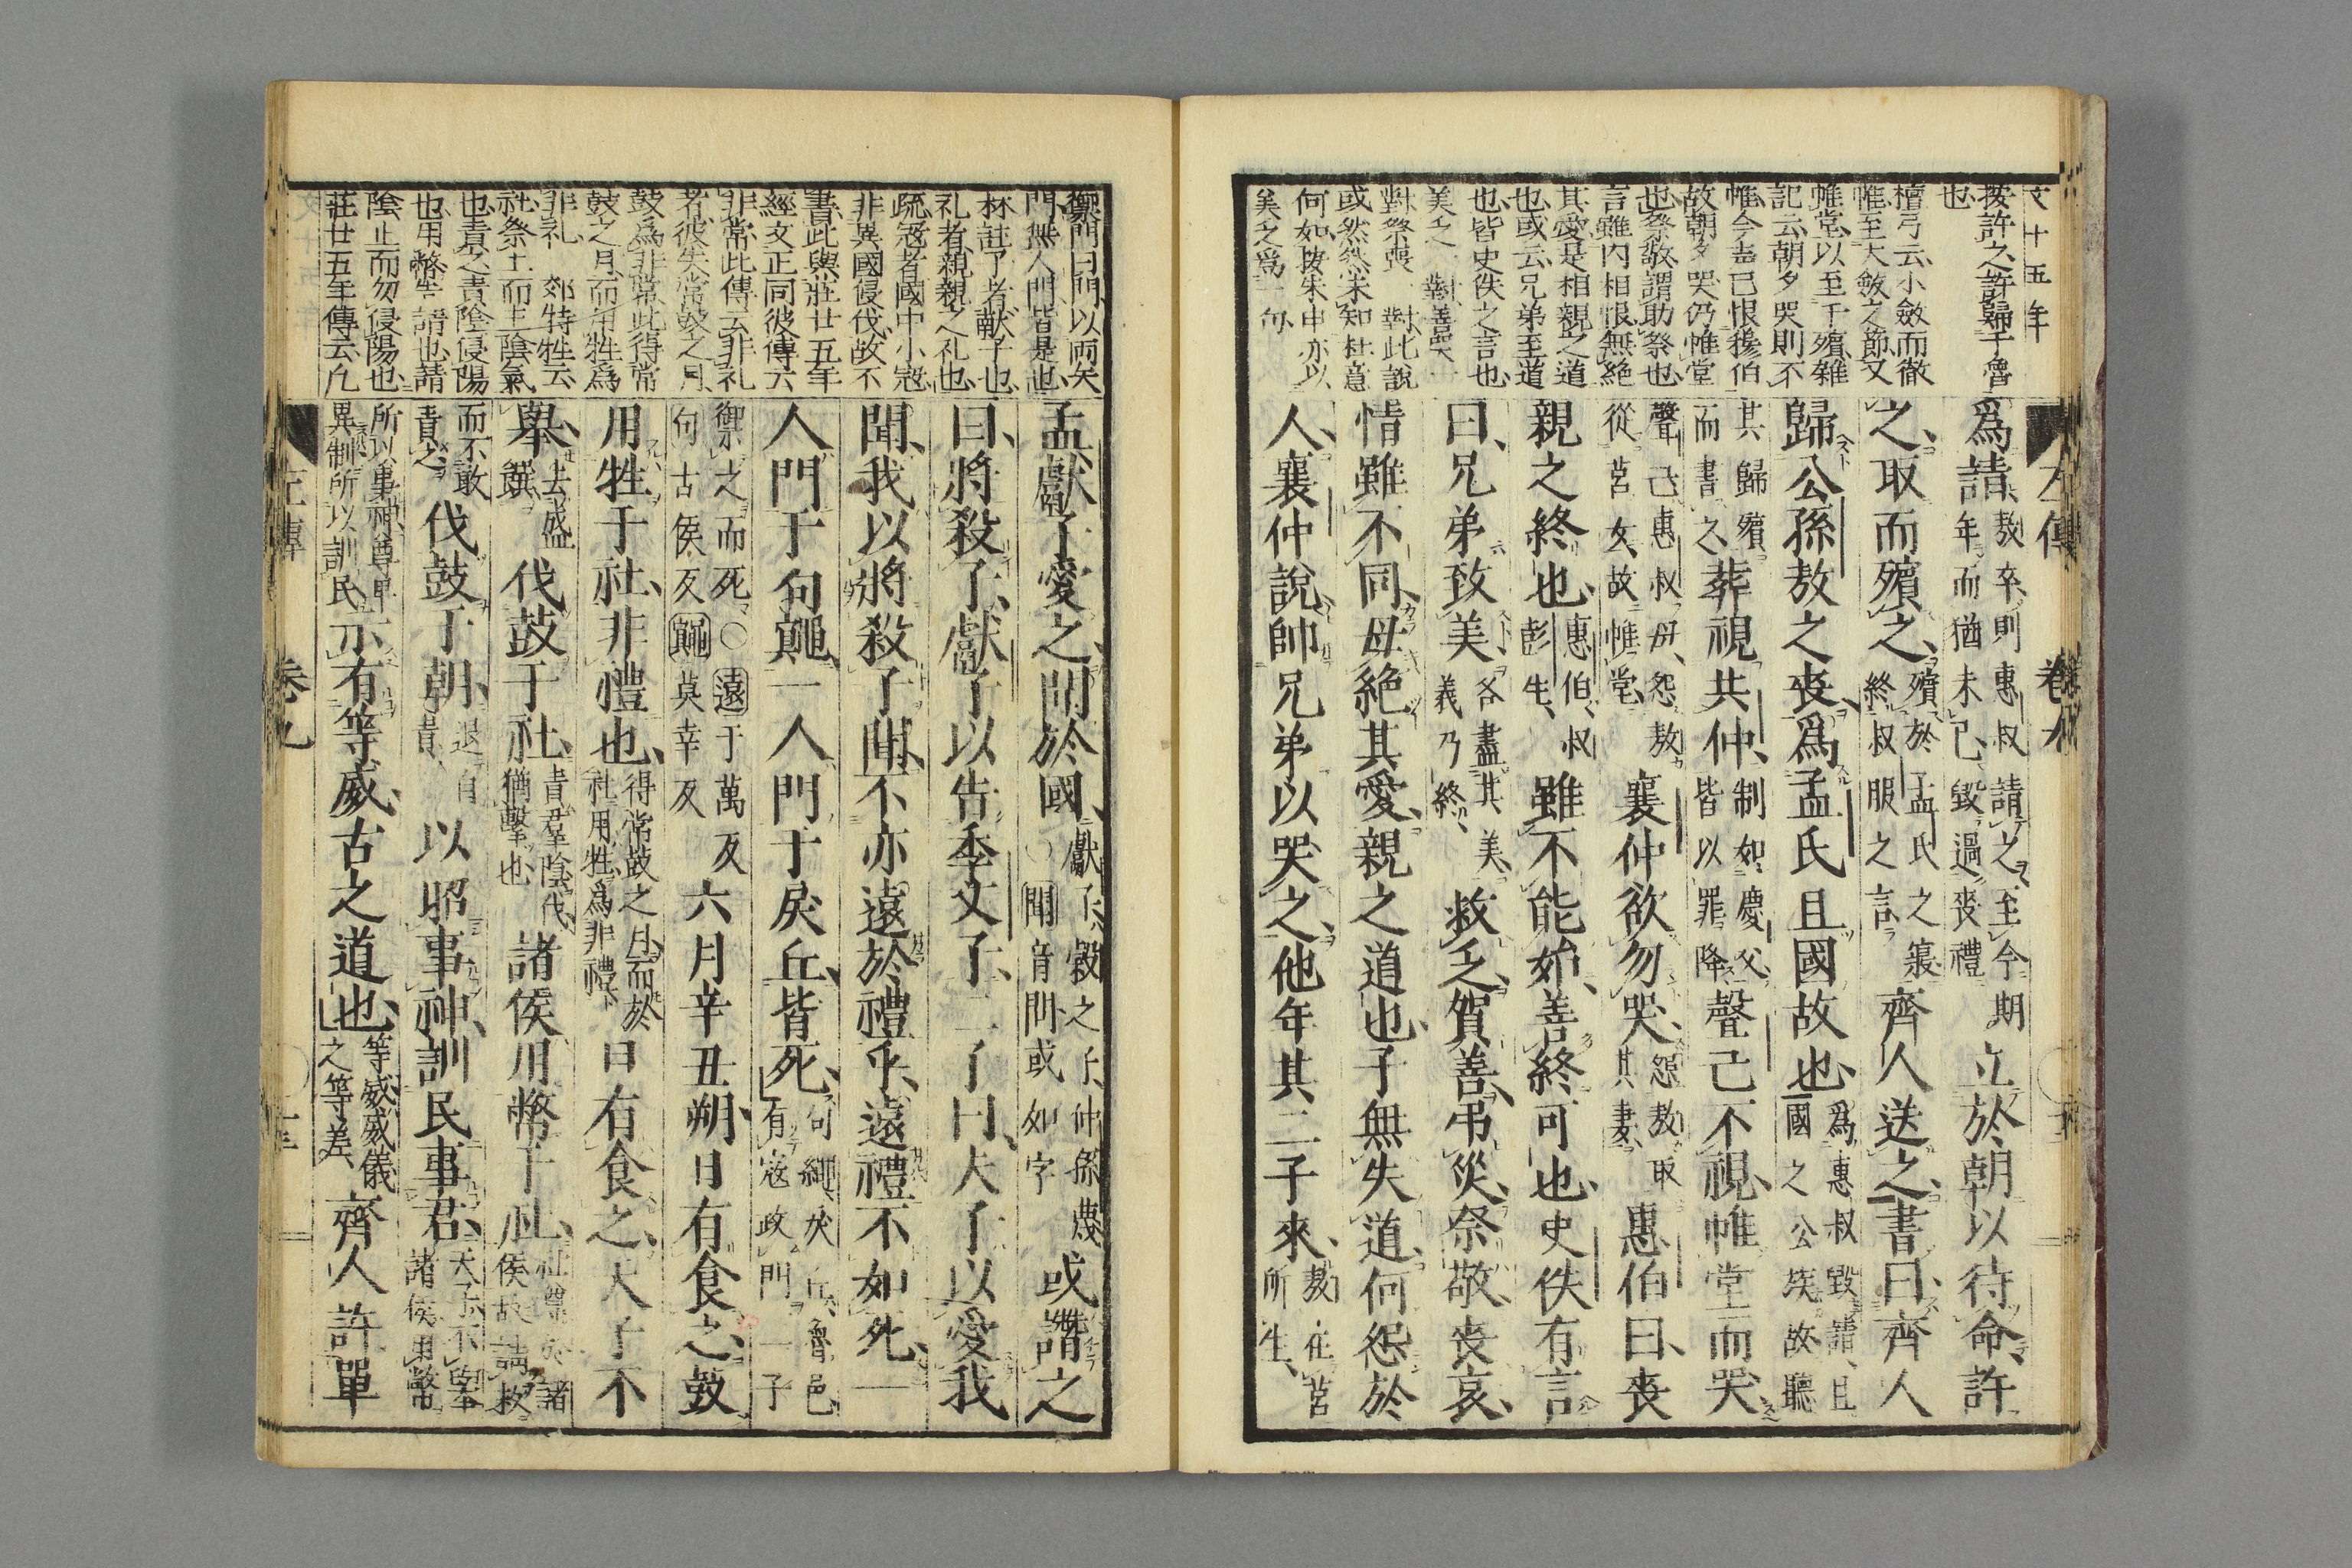 文十五年
按許之許歸于魯
也
檀弓云小斂而徹
帷至大斂之節又
帷堂以至于殯雜
記云朝夕哭則不
帷今聲己恨穆伯
故朝夕哭仍帷堂
也祭敬謂助祭也
言雖内相恨無絶
其愛是相親之道
也或云兄弟至道
也皆史佚之言也
美乏一對善
對祭喪 對此說
或然然未知杜意
何如按朱申亦以
美乏爲一句
左傳 卷九
爲請敖卒則惠叔請之至今期年而猶未已毀過喪禮立於朝以待命許
之取而殯之殯於孟氏之寢終叔服之言齊人送之書曰齊人
歸公孫敖之喪爲孟氏且國故也爲惠叔毀請且國之公族故聽
其歸殯而書之葬視共仲制如慶父皆以罪降聲己不視帷堂而哭
聲己惠叔母怨敖從莒女故帷堂襄仲欲勿哭怨敖取其妻惠伯曰喪
親之終也惠伯叔彭生雖不能始善終可也史佚有言
曰兄弟致美各盡其美義乃終救乏賀善弔災祭敬喪哀
情雖不同毋絶其愛親之道也子無失道何怨於
人襄仲說帥兄弟以哭之他年其二子來敖在莒所生
禦門曰門以両矢
門無人門皆是也
林註了者獻子也
礼者親親之礼也
疏冦者國中小冦
非異國侵伐故不
書此與莊廿五年
經文正同彼傳六
非常此傳云非礼
者彼失常鼓之月
鼓爲非常此得常
鼓之月而用牲爲
非礼 郊特牲云
社祭土而主陰氣
也責之責陰侵陽
也用幣告請也請
陰止而勿侵陽也
莊廿五年傳云凡
孟獻子愛之聞於國獻子穀之子仲孫蔑○聞音問或如字或譖之
曰將殺子獻子以告季文子二子曰夫子以愛我
聞我以將殺子聞不亦遠於禮乎遠禮不如死一
人門于句鼆一人門于戾丘皆死句鼆戾丘魯邑有冦攻門二子
禦之而死○遠于萬反句古侯反鼆莫幸反六月辛丑朔日有食之鼓
用牲于社非禮也得常鼓之月而於社用牲爲非禮日有食之天子不
舉去盛饌伐鼓于社責羣陰伐猶擊也諸侯用幣于社社尊於諸侯故請救
而不敢責之伐鼓于朝退自責以昭事神訓民事君天子不舉諸侯用幣
所以事神尊卑異制所以訓民示有等威古之道也等威威儀之等差齊人許單
左傳 卷九